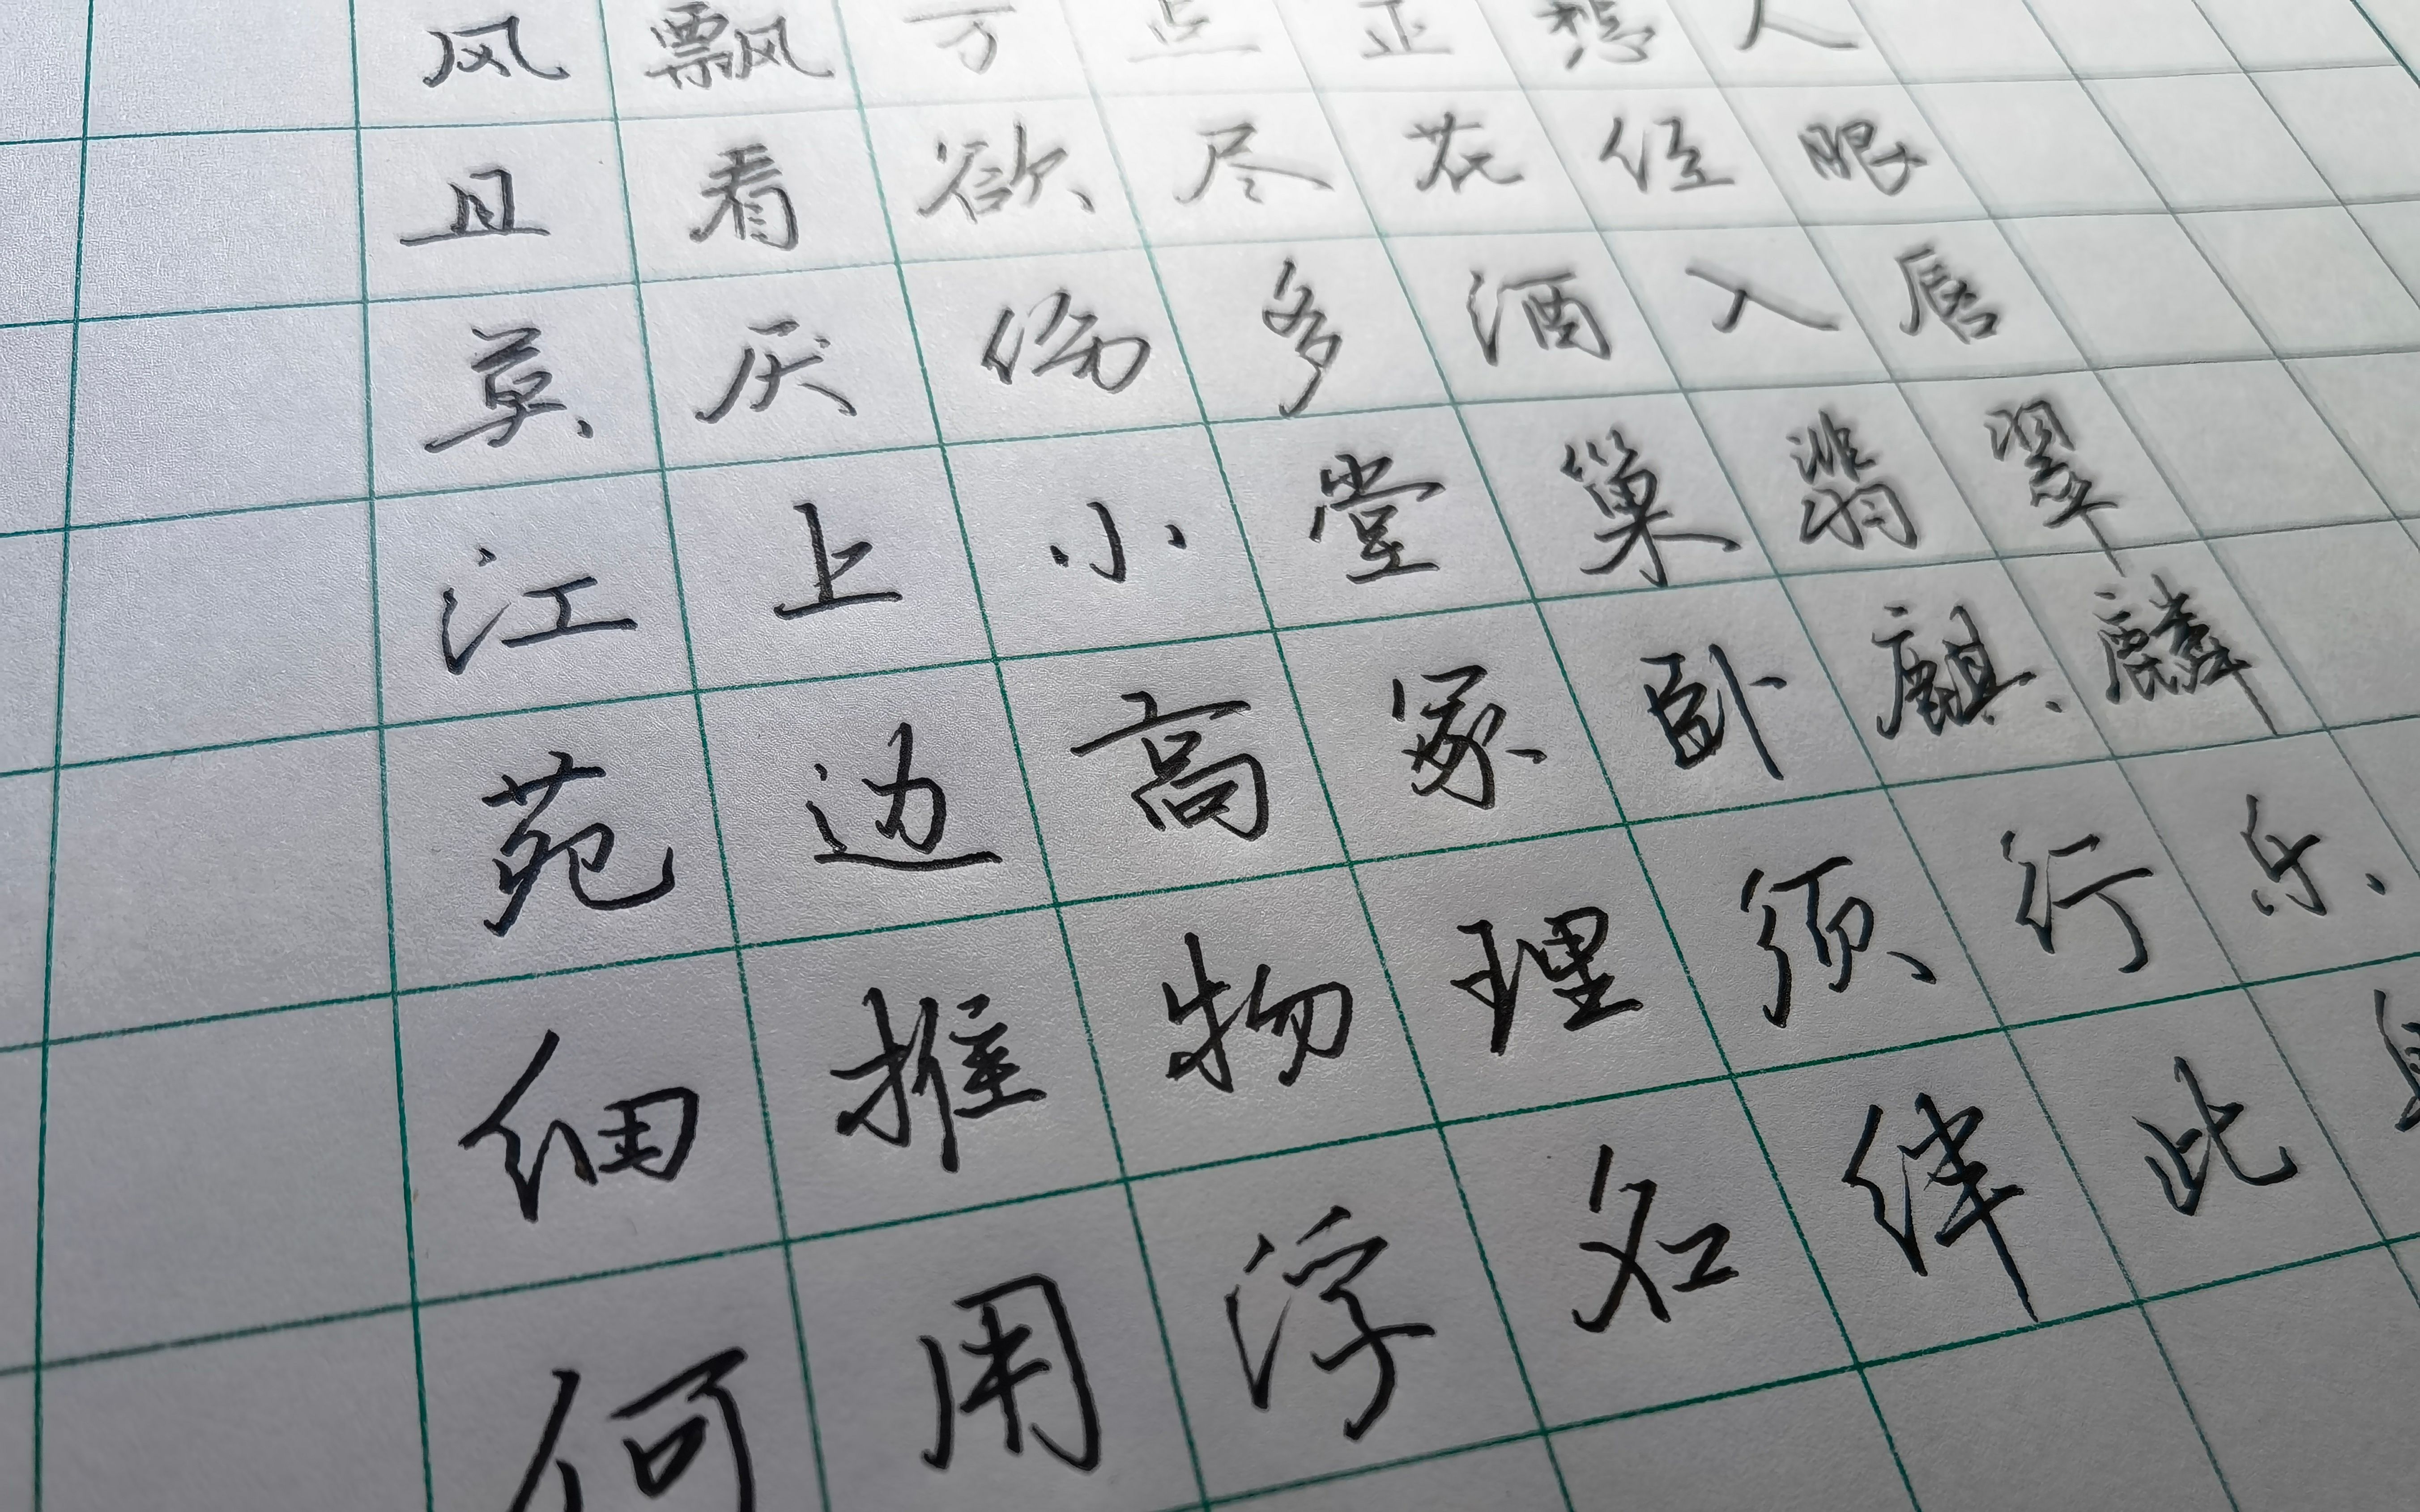 风飘万点正愁人
且看欲尽花经眼
莫厌伤多酒入唇
江上小堂巢翡翠
苑边高冢卧麒麟
细推物理须行乐
何用浮名绊此身